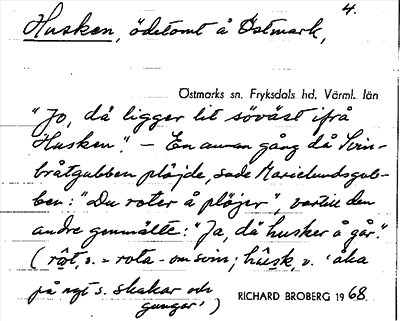 4.
Husken, ödetomt å Östmark,
Östmarks sn. Fryksdals hd. Värml. län
"Jo, då ligger lit söväst ifrå
Husken." – En annan gång då Svin-
bråtgubben plöjde, sade Marielundsgub-
ben: "Du roter å plöjer", vartill den
andre genmälte: "Ja, då husker å går."
( rōt, v. = rota - om svin; hūsk, v. 'åka
på ngt s. skakar och
gungar' )
RICHARD BROBERG 1968.